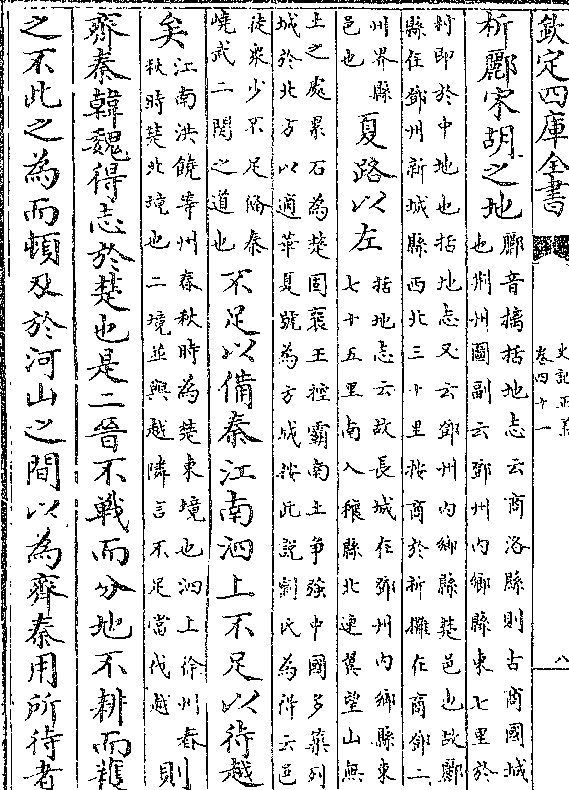 欽定四庫全書
史記正義
卷四十一
八
析酈宋胡之地
酈音擿括地志云商洛縣則古商國城
也荆州圖副云鄧州内鄉縣東七里於
村即於中地也括地志又云鄧州内鄉縣楚邑也故酈
縣在鄧州新城縣西北三十里按商於析酈在商鄧二
州界縣
邑也
夏路以左
括地志云故長城在鄧州内鄉縣東
七十五里南入穰縣北連翼望山無
土之處累石為楚固襄王控霸南土争強中國多築列
城於北方以適華夏號為方城按此說劉氏為得云邑
徒衆少不足備秦
嶢武二關之道也
不足以備秦江南泗上不足以待越
矣
江南洪饒等州春秋時為楚東境也泗上徐州春
秋時楚北境也二境並與越隣言不足當伐越
則
齊秦韓魏得志於楚也是二晉不戰而分地不耕而穫
之不此之為而頓刃於河山之間以為齊秦用所待者